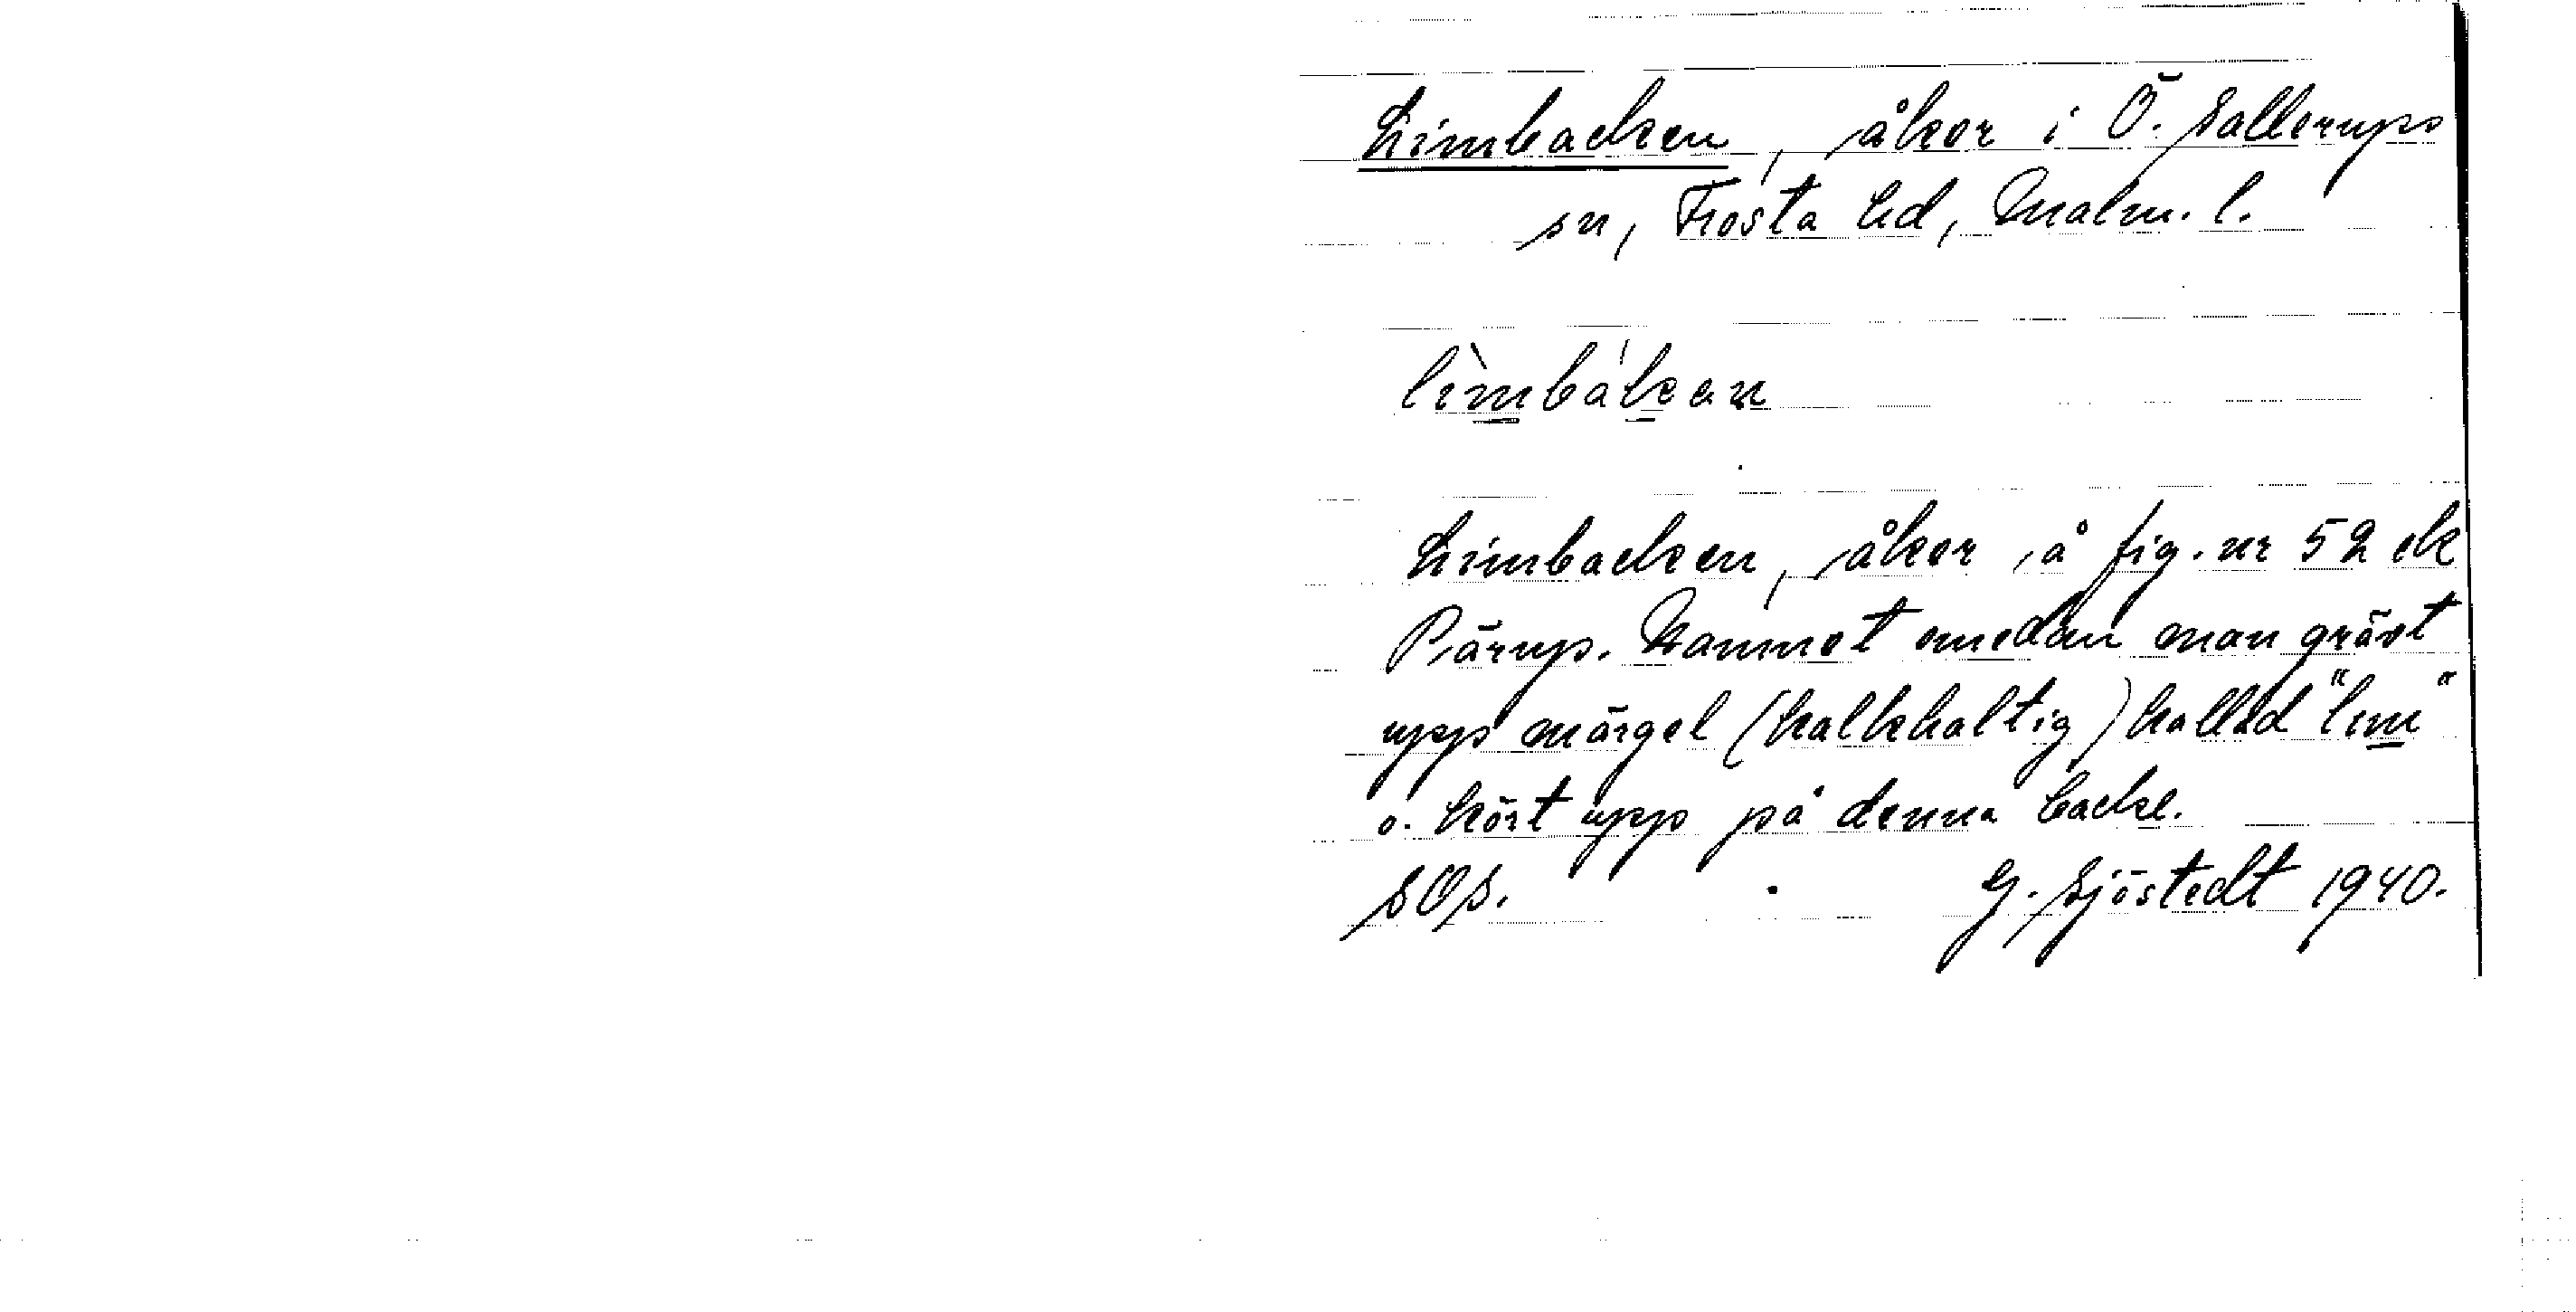 Limbacken, åker i Ö. Sallerups
sn, Frosta hd, Malm. l.
lìmbákan
Limbacken, åker å fig. nr 52 ek
Pärup. Namnet emedan man grävt
upp märgel (kalkhaltig) kallad "lim"
o. kört upp på denna backe.
SOS. G. Sjöstedt 1940.